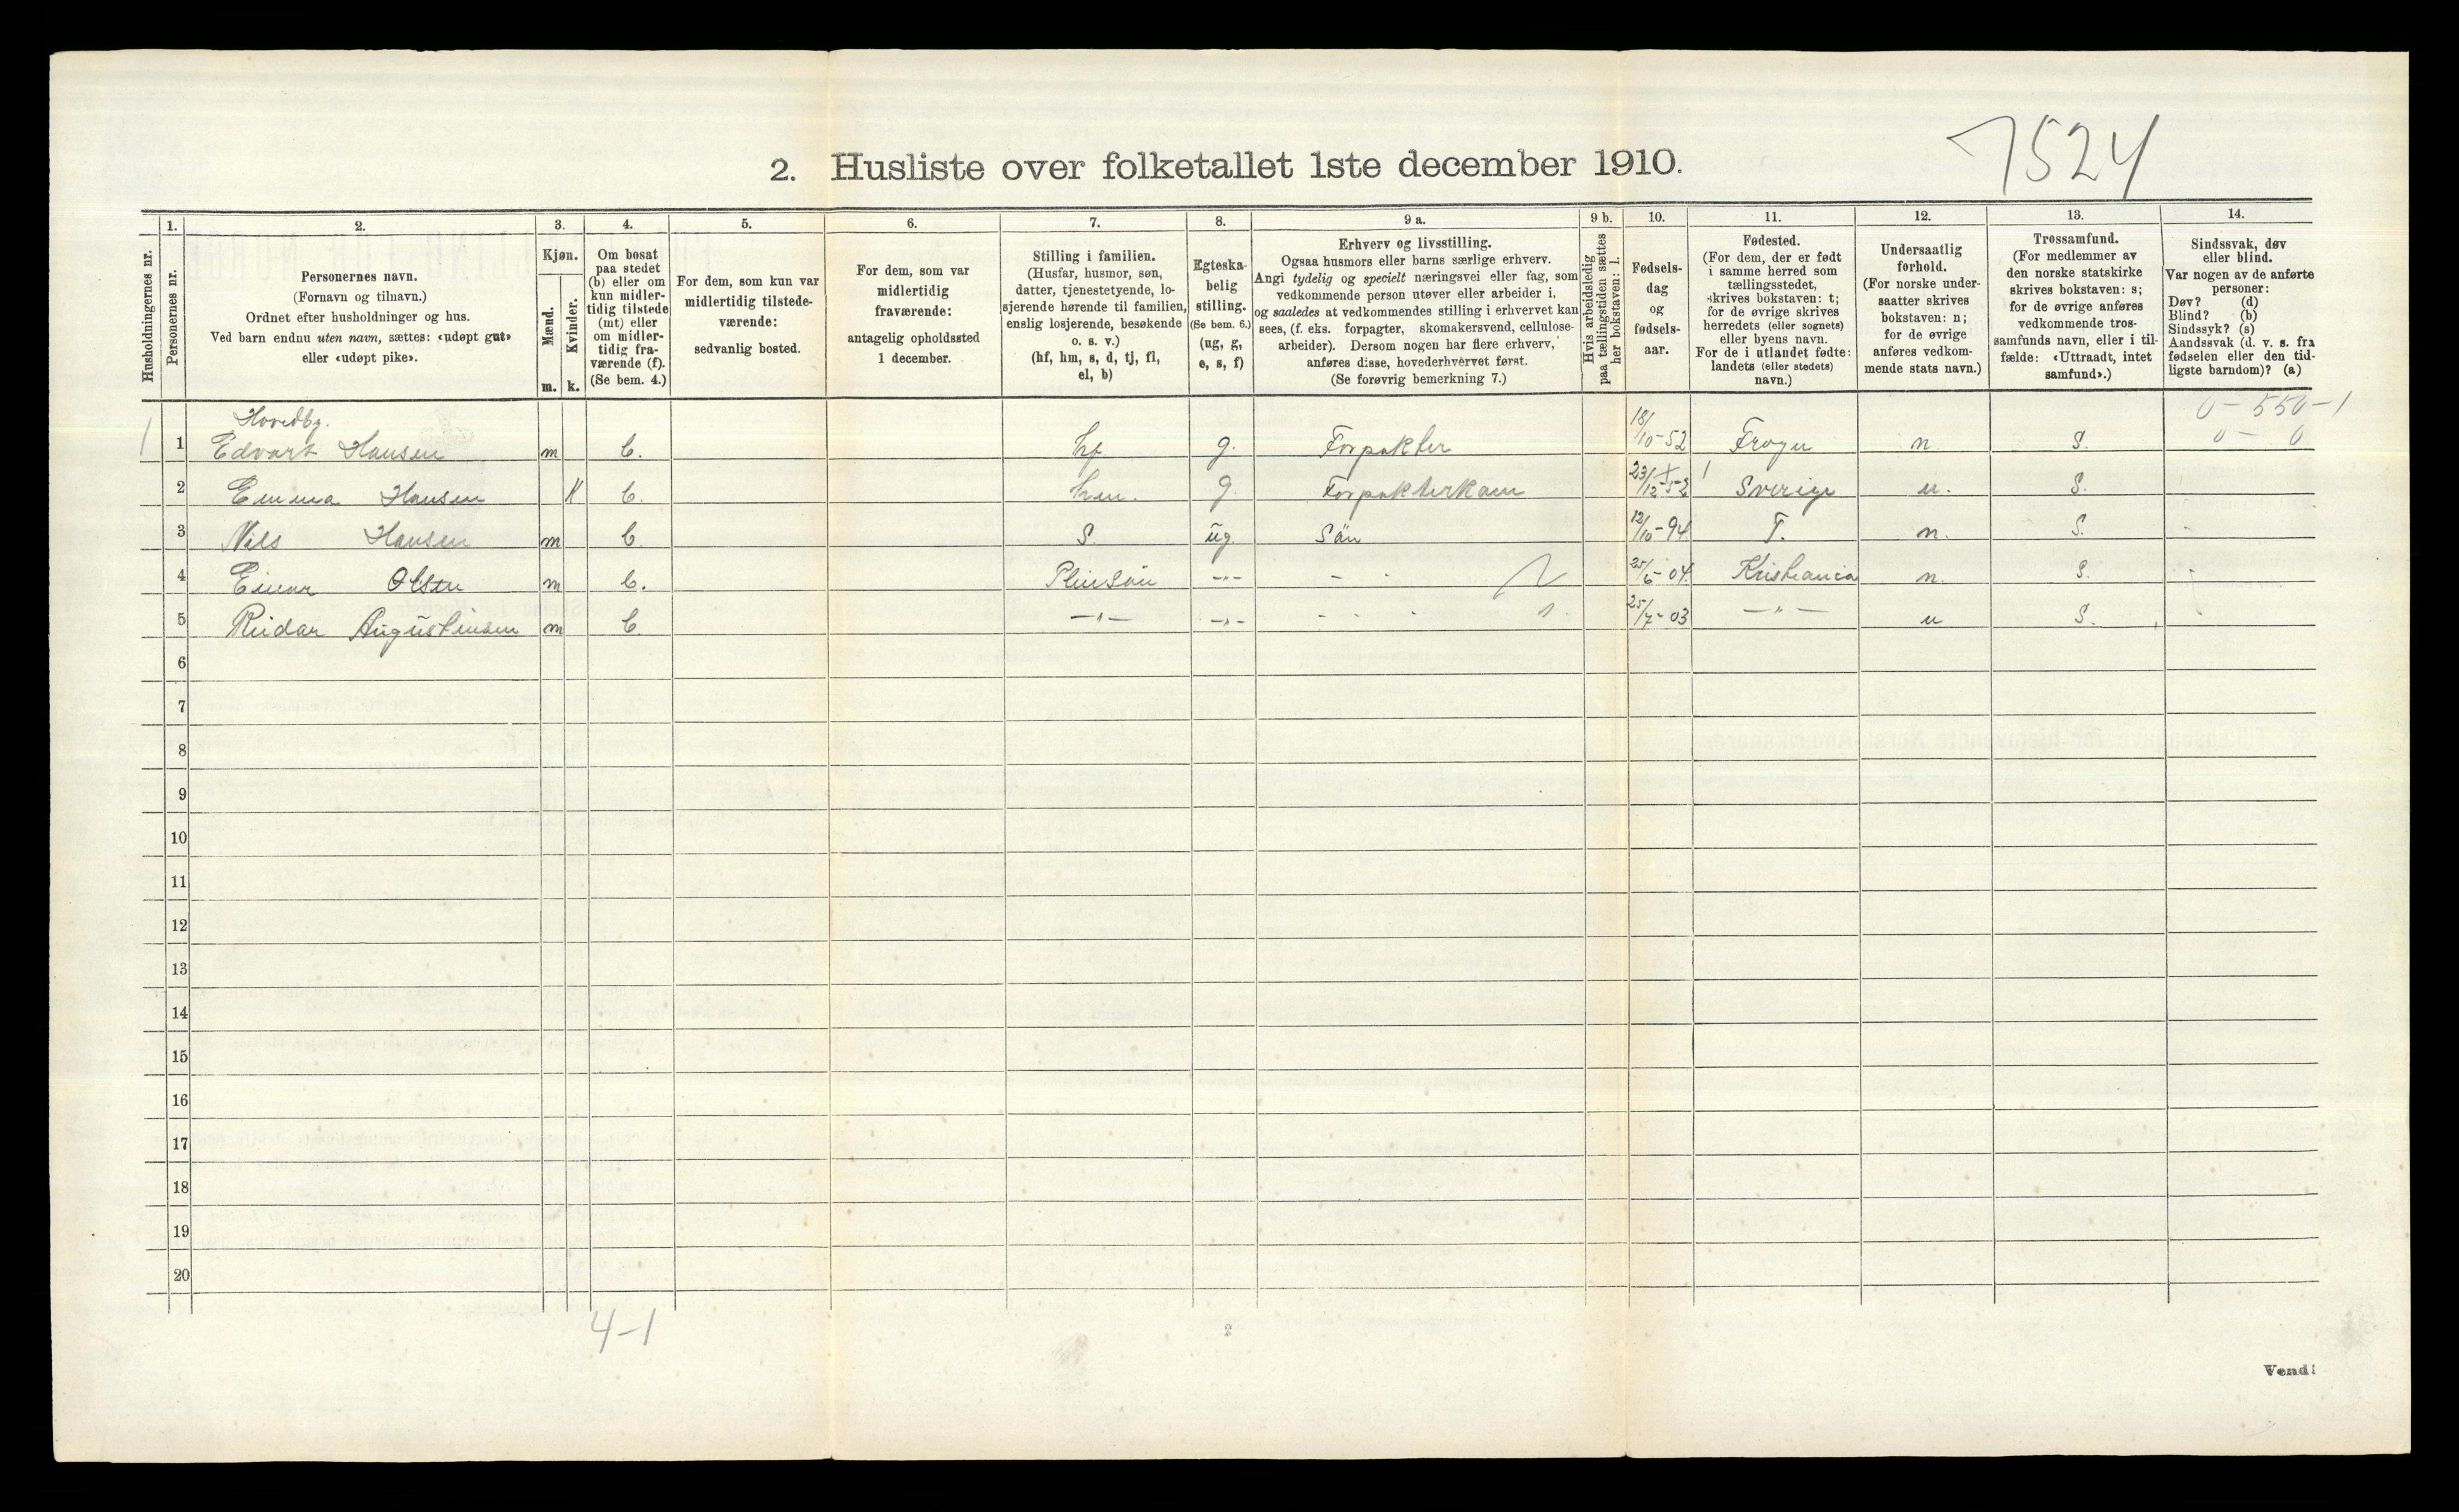 7524
2. Husliste over folketallet 1ste december 1910.
1. 2. 3. 4. 5. 6. 7. 8. 9 a. 9 b. 10. 11. 12. 13. 14.
Husholdningernes nr.
Personernes nr.
Personernes navn.
(Fornavn og tilnavn.)
Ordnet efter husholdninger og hus.
Ved barn endnu uten navn, sættes: «udøpt gut»
eller «udøpt pike».
Kjøn.
Mænd.
Kvinder.
m. k.
Om bosat
paa stedet
(b) eller om
kun midler-
tidig tilstede
(mt) eller
om midler-
tidig fra-
værende (f).
(Se bem. 4.)
For dem, som kun var
midlertidig tilstede-
værende:
sedvanlig bosted.
For dem, som var
midlertidig
fraværende:
antagelig opholdssted
1 december.
Stilling i familien.
(Husfar, husmor, søn,
datter, tjenestetyende, lo-
sjerende hørende til familien,
enslig losjerende, besøkende
o. s. v.)
(hf, hm, s, d, tj, fl,
el, b)
Egteska-
belig
stilling.
(Se bem. 6.)
(ug, g,
e, s, f)
Erhverv og livsstilling.
Ogsaa husmors eller barns særlige erhverv.
Angi tydelig og specielt næringsvei eller fag, som
vedkommende person utøver eller arbeider i,
og saaledes at vedkommendes stilling i erhvervet kan
sees, (f. eks. forpagter, skomakersvend, cellulose-
arbeider). Dersom nogen har flere erhverv,
anføres disse, hovederhvervet først.
(Se forøvrig bemerkning 7.)
Hvis arbeidsledig
paa tællingstiden sættes
her bokstaven: l.
Fødsels-
dag
og
fødsels-
aar.
Fødested.
(For dem, der er født
i samme herred som
tællingsstedet,
skrives bokstaven: t;
for de øvrige skrives
herredets (eller sognets)
eller byens navn.
For de i utlandet fødte:
landets (eller stedets)
navn.)
Undersaatlig
forhold.
(For norske under-
saatter skrives
bokstaven: n;
for de øvrige
anføres vedkom-
mende stats navn.)
Trossamfund.
(For medlemmer av
den norske statskirke
skrives bokstaven: s;
for de øvrige anføres
vedkommende tros-
samfunds navn, eller i til-
fælde: «Uttraadt, intet
samfund».)
Sindssvak, døv
eller blind.
Var nogen av de anførte
personer:
Døv? (d)
Blind? (b)
Sindssyk? (s)
Aandssvak (d. v. s. fra
fødselen eller den tid-
ligste barndom)? (a)
0-550-1
0- 0
Hovedbg.
1 1 Edvart Hansen m b. hf g. Forpakter 18/10-52 Frogn n S.
2 Emma Hansen k b. hm. g. Forpakterkam 23/12-52 Sverige n. S.
3 Nils Hansen m b S. ug. Sön 12/10-94 T. n. S.
4 Einar Olsen m b. Pleiesön -"- - - 25/6-04 Kristiania n. S.
5 Reidar Augustinsen m b -"- -"- - - 25/7-03 -"- n S.
6
7
8
9
10
11
12
13
14
15
16
17
18
19
20
4-1
2
Vend!